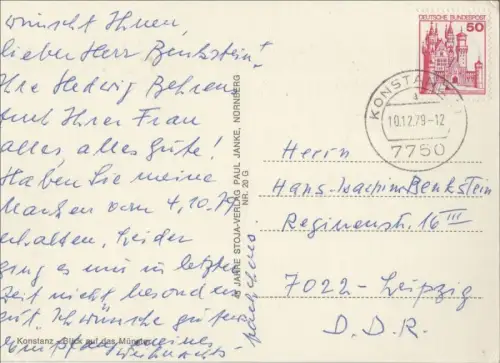 wünscht Ihnen,
lieber Herr Benkstein!
Ihre Hedwig Behren
und Ihrer Frau
alles, alles Gute!
Haben Sie meine
Marken vom 4.10.79
erhalten. Leider
ging es mir in letzter
Zeit nicht besonders
gut. Ich wünsche guten
Konstanz - Blick auf das Münster
25 JAHRE STOJA-VERLAG PAUL JANKE, NÜRNBERG
NR. 20 G
DEUTSCHE BUNDESPOST
50
KONSTANZ
10.12.79-12
7750
Herrn
Hans-Joachim Benkstein
Reginenstr. 16 III
7022 - Leipzig
D. D. R.